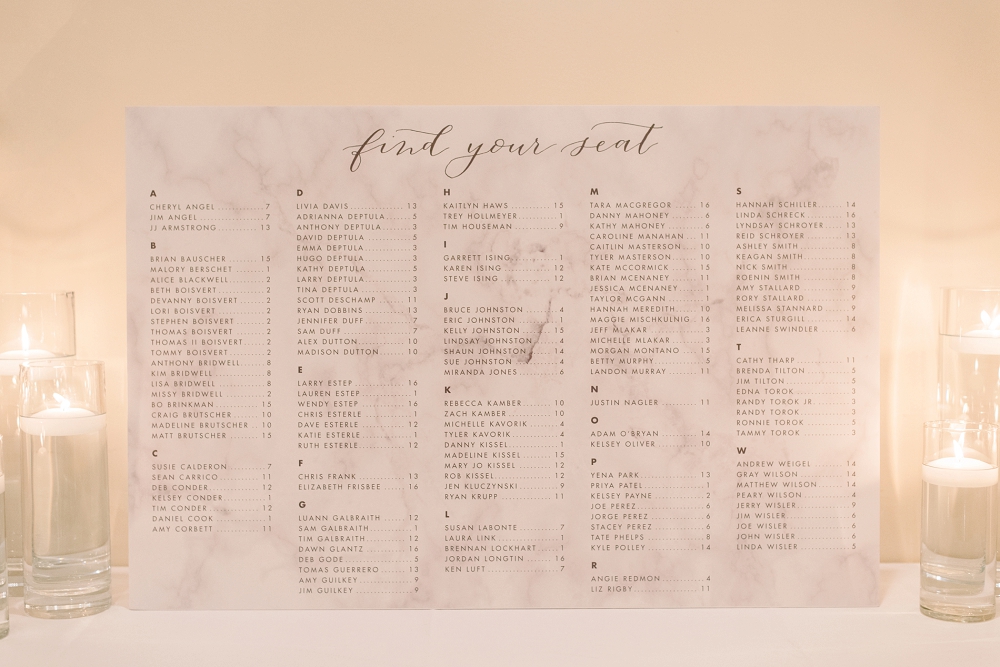 find your seat
A
CHERYL ANGEL 7
JIM ANGEL 7
JJ ARMSTRONG 13
B
BRIAN BAUSCHER 15
MALORY BERSCHET 1
ALICE BLACKWELL 2
BETH BOISVERT 2
DEVANNY BOISVERT 2
LORI BOISVERT 2
STEPHEN BOISVERT 2
THOMAS BOISVERT 2
THOMAS II BOISVERT 2
TOMMY BOISVERT 2
ANTHONY BRIDWELL 8
KIM BRIDWELL 8
LISA BRIDWELL 8
MISSY BRIDWELL 2
BO BRINKMAN 15
CRAIG BRUTSCHER 10
MADELINE BRUTSCHER 10
MATT BRUTSCHER 15
C
SUSIE CALDERON 7
SEAN CARRICO 11
DEB CONDER 12
KELSEY CONDER 1
TIM CONDER 12
DANIEL COOK 1
AMY CORBETT 11
D
LIVIA DAVIS 13
ADRIANNA DEPTULA 5
ANTHONY DEPTULA 3
DAVID DEPTULA 5
EMMA DEPTULA 3
HUGO DEPTULA 3
KATHY DEPTULA 5
LARRY DEPTULA 3
TINA DEPTULA 3
SCOTT DESCHAMP 11
RYAN DOBBINS 13
JENNIFER DUFF 7
SAM DUFF 7
ALEX DUTTON 10
MADISON DUTTON 10
E
LARRY ESTEP 16
LAUREN ESTEP 1
WENDY ESTEP 16
CHRIS ESTERLE 1
DAVE ESTERLE 12
KATIE ESTERLE 1
RUTH ESTERLE 12
F
CHRIS FRANK 13
ELIZABETH FRISBEE 16
G
LUANN GALBRAITH 12
SAM GALBRAITH 1
TIM GALBRAITH 12
DAWN GLANTZ 16
DEB GODE 5
TOMAS GUERRERO 13
AMY GUILKEY 9
JIM GUILKEY 9
H
KAITLYN HAWS 15
TREY HOLLMEYER 1
TIM HOUSEMAN 9
I
GARRETT ISING 1
KAREN ISING 12
STEVE ISING 12
J
BRUCE JOHNSTON 4
ERIC JOHNSTON 4
KELLY JOHNSTON 15
LINDSAY JOHNSTON 4
SHAUN JOHNSTON 14
SUE JOHNSTON 4
MIRANDA JONES 6
K
REBECCA KAMBER 10
ZACH KAMBER 10
MICHELLE KAVORIK 4
TYLER KAVORIK 4
DANNY KISSEL 1
MADELINE KISSEL 15
MARY JO KISSEL 12
ROB KISSEL 12
JEN KLUCZYNSKI 9
RYAN KRUPP 11
L
SUSAN LABONTE 7
LAURA LINK 1
BRENNAN LOCKHART 1
JORDAN LONGTIN 16
KEN LUFT 7
M
TARA MACGREGOR 16
DANNY MAHONEY 6
KATHY MAHONEY 6
CAROLINE MANAHAN 11
CAITLIN MASTERSON 10
TYLER MASTERSON 10
KATE MCCORMICK 15
BRIAN MCNENANEY 11
JESSICA MCNENANEY 1
TAYLOR MCGANN 1
HANNAH MEREDITH 10
MAGGIE MISCHKULNIG 16
JEFF MLAKAR 3
MICHELLE MLAKAR 3
MORGAN MONTANO 15
BETTY MURPHY 5
LANDON MURRAY 11
N
JUSTIN NAGLER 11
O
ADAM O'BRYAN 14
KELSEY OLIVER 10
P
YENA PARK 13
PRIYA PATEL 1
KELSEY PAYNE 2
JOE PEREZ 6
JORGE PEREZ 6
STACEY PEREZ 6
TATE PHELPS 8
KYLE POLLEY 14
R
ANGIE REDMON 4
LIZ RIGBY 11
S
HANNAH SCHILLER 14
LINDA SCHRECK 16
LYNDSAY SCHROYER 13
REID SCHROYER 13
ASHLEY SMITH 8
KEAGAN SMITH 8
NICK SMITH 8
ROENIN SMITH 8
AMY STALLARD 9
RORY STALLARD 9
MELISSA STANNARD 9
ERICA STURGILL 14
LEANNE SWINDLER 6
T
CATHY THARP 11
BRENDA TILTON 5
JIM TILTON 5
EDNA TOROK 3
RANDY TOROK JR 3
RANDY TOROK 3
RONNIE TOROK 5
TAMMY TOROK 3
W
ANDREW WEIGEL 14
GRAY WILSON 14
MATTHEW WILSON 14
PEARY WILSON 4
JERRY WISLER 9
JIM WISLER 6
JOE WISLER 6
JOHN WISLER 6
LINDA WISLER 5